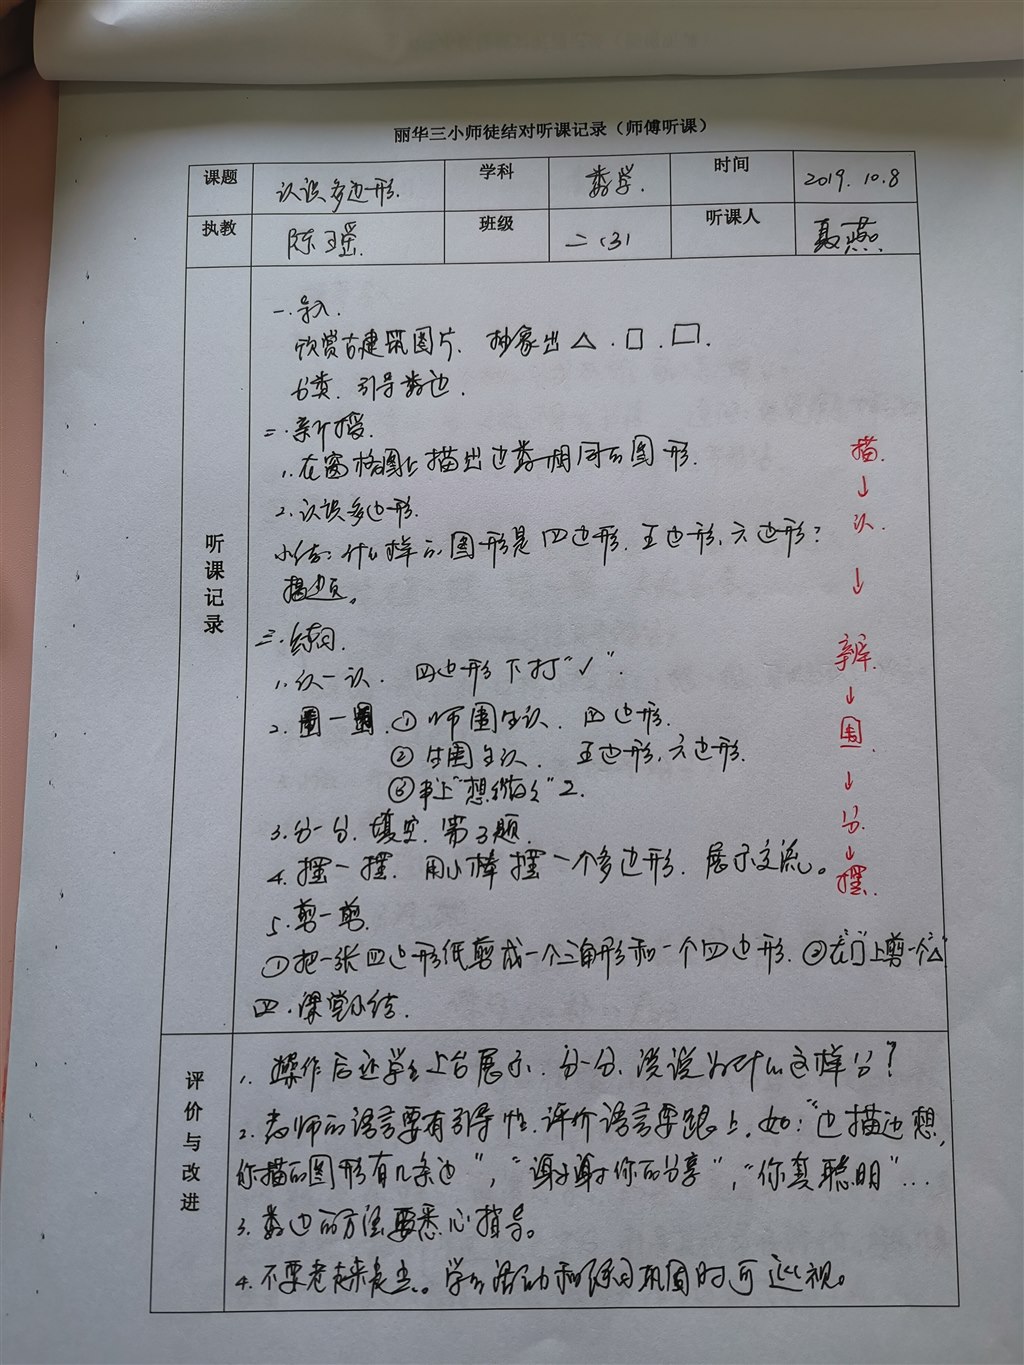 丽华三小师徒结对听课记录（师傅听课）
课题 认识多边形. 学科 数学. 时间 2019.10.8
执教 陈瑶 班级 二（3） 听课人 聂燕
听课记录
一.导入.
欣赏古建筑图片. 抽象出△.□.□.
分类. 引导数边.
二.新授.
1.在窗格图上描出边数相同的图形.
2.认识多边形.
小结:什么样的图形是四边形.五边形.六边形?
揭题。
三.练习.
1.认一认. 四边形下打"✓".
2.围一围.①师围生认. 四边形.
②生围生认. 五边形,六边形.
③书上"想想做做"2.
3.分一分.填空.第3题.
4.摆一摆. 用小棒摆一个多边形. 展示交流。
5.剪一剪.
①把一张四边形纸剪成一个三角形和一个四边形.②在"□"上剪一个△
四.课堂小结.
描.
↓
认.
↓
辨.
↓
围.
↓
分.
↓
摆.
评价与改进
1. 操作后还学生上台展示.分一分、说说为什么这样分?
2.老师的语言要有引导性.评价语言要跟上.如:"边描边想,
你描的图形有几条边","谢谢你的分享","你真聪明"…
3.数边的方法要悉心指导。
4.不要老走来走去。学生活动和练习巩固时可巡视。